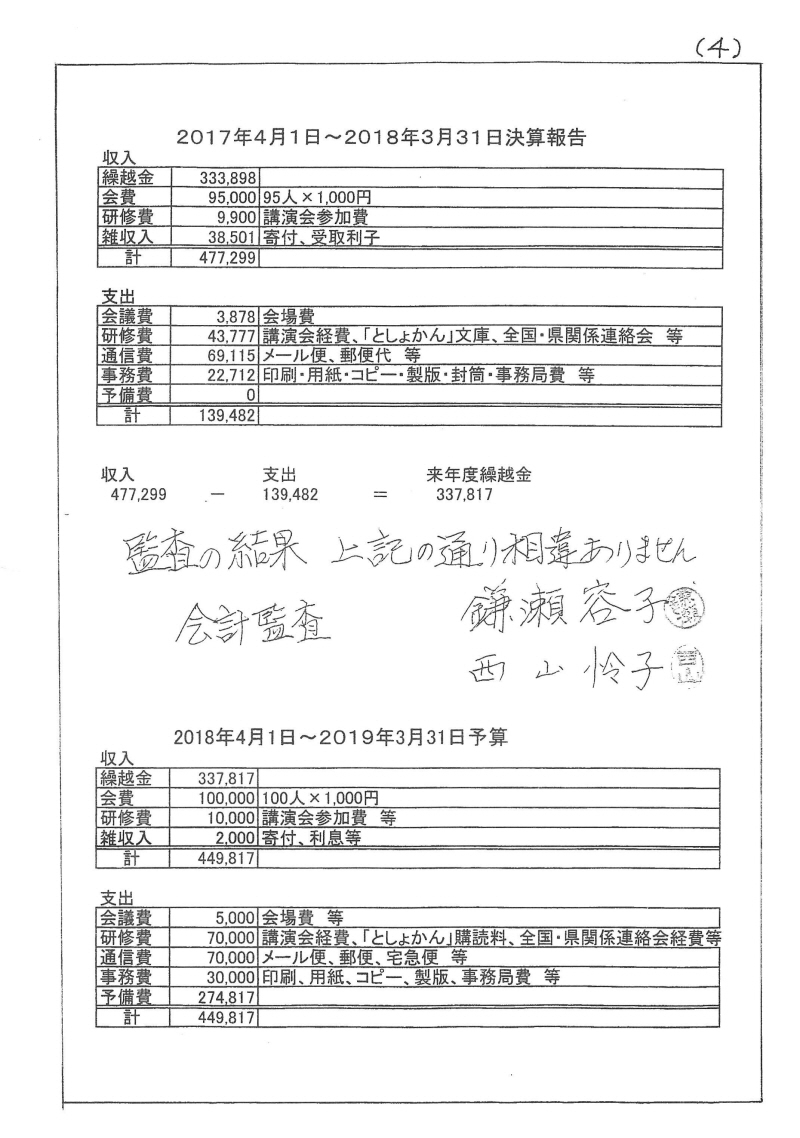 (4)
2017年4月1日～2018年3月31日決算報告
収入
繰越金 333,898
会費 95,000 95人×1,000円
研修費 9,900 講演会参加費
雑収入 38,501 寄付、受取利子
計 477,299
支出
会議費 3,878 会場費
研修費 43,777 講演会経費、「としょかん」文庫、全国・県関係連絡会 等
通信費 69,115 メール便、郵便代 等
事務費 22,712 印刷・用紙・コピー・製版・封筒・事務局費 等
予備費 0
計 139,482
収入 支出 来年度繰越金
477,299 － 139,482 ＝ 337,817
監査の結果 上記の通り相違ありません
会計監査 鎌瀬容子
西山怜子
2018年4月1日～2019年3月31日予算
収入
繰越金 337,817
会費 100,000 100人×1,000円
研修費 10,000 講演会参加費 等
雑収入 2,000 寄付、利息等
計 449,817
支出
会議費 5,000 会場費 等
研修費 70,000 講演会経費、「としょかん」購読料、全国・県関係連絡会経費等
通信費 70,000 メール便、郵便、宅急便 等
事務費 30,000 印刷、用紙、コピー、製版、事務局費 等
予備費 274,817
計 449,817